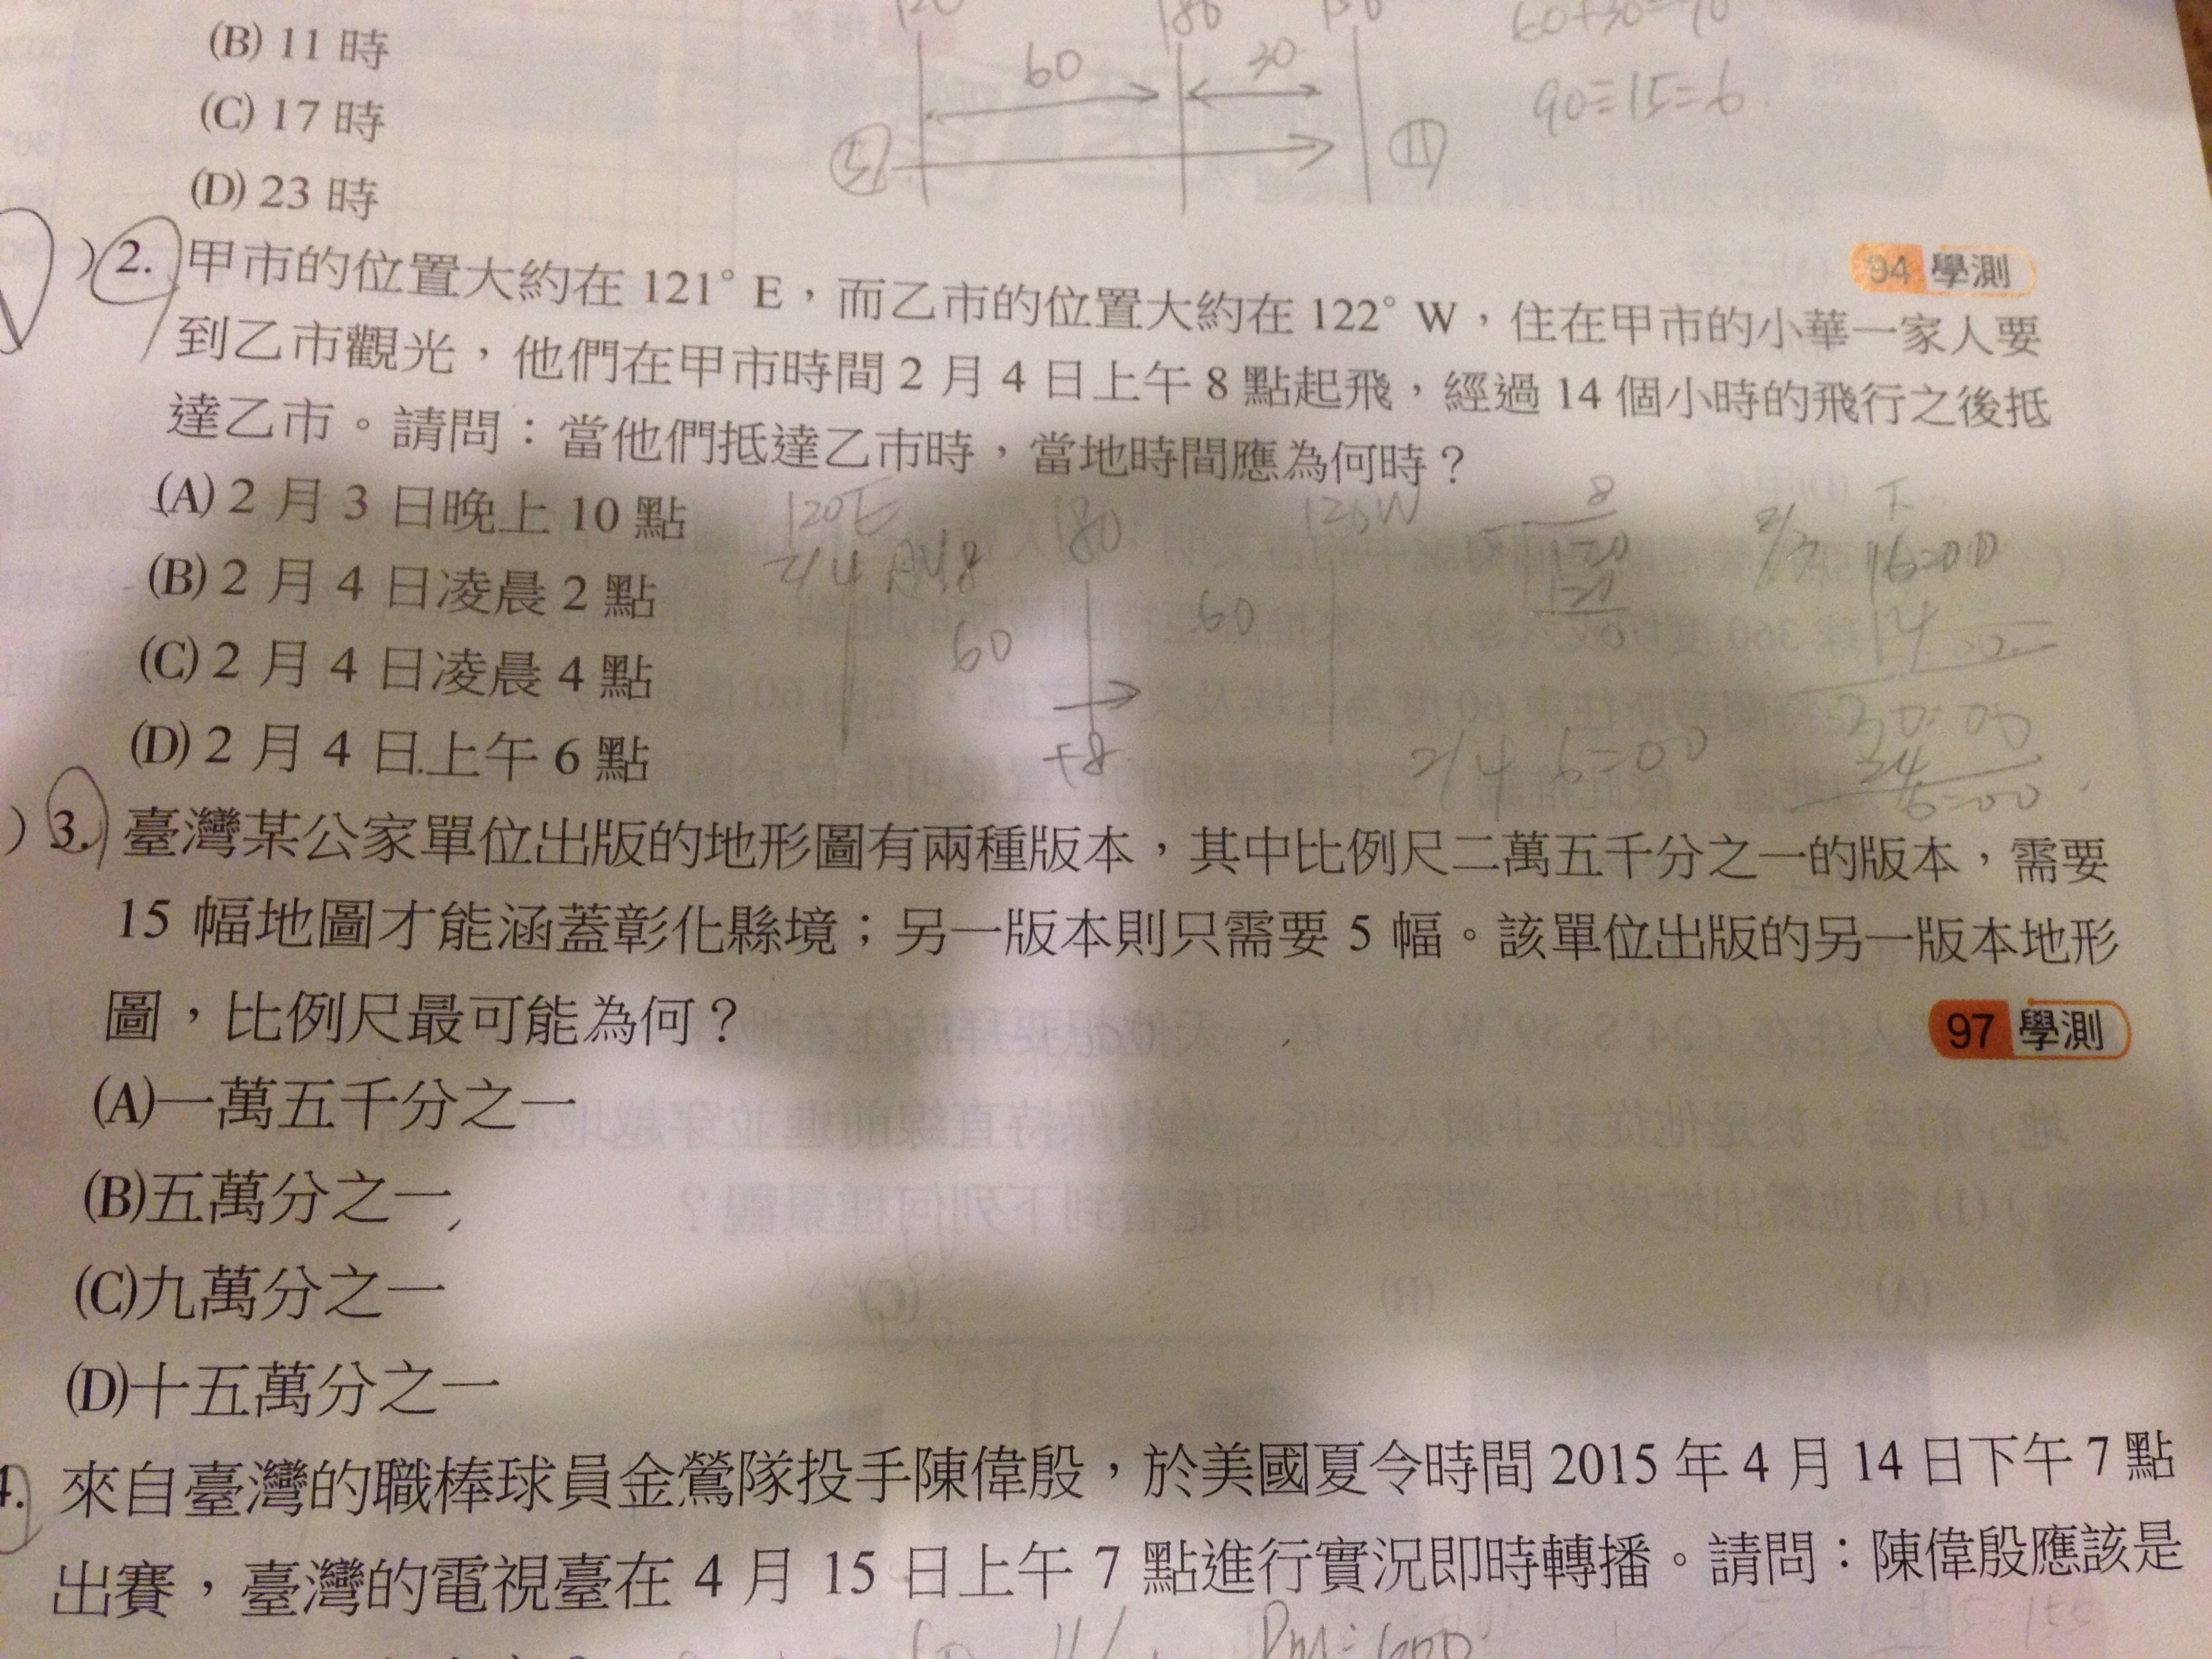 (B) 11 時
60
30
60+30=90
(C) 17 時
90÷15=6
5
11
(D) 23 時
94 學測
2. 甲市的位置大約在 121° E,而乙市的位置大約在 122° W,住在甲市的小華一家人要
到乙市觀光,他們在甲市時間 2 月 4 日上午 8 點起飛,經過 14 個小時的飛行之後抵
達乙市。請問:當他們抵達乙市時,當地時間應為何時?
(A) 2 月 3 日晚上 10 點
120E
180
120W
8
2/4 AM8
(B) 2 月 4 日凌晨 2 點
2/3
16:00
60
60
(C) 2 月 4 日凌晨 4 點
+8
(D) 2 月 4 日上午 6 點
2/4 6:00
30:00
24
6:00
3. 臺灣某公家單位出版的地形圖有兩種版本,其中比例尺二萬五千分之一的版本,需要
15 幅地圖才能涵蓋彰化縣境;另一版本則只需要 5 幅。該單位出版的另一版本地形
圖,比例尺最可能為何?
97 學測
(A)一萬五千分之一
(B)五萬分之一
(C)九萬分之一
(D)十五萬分之一
4. 來自臺灣的職棒球員金鶯隊投手陳偉殷,於美國夏令時間 2015 年 4 月 14 日下午 7 點
出賽,臺灣的電視臺在 4 月 15 日上午 7 點進行實況即時轉播。請問:陳偉殷應該是